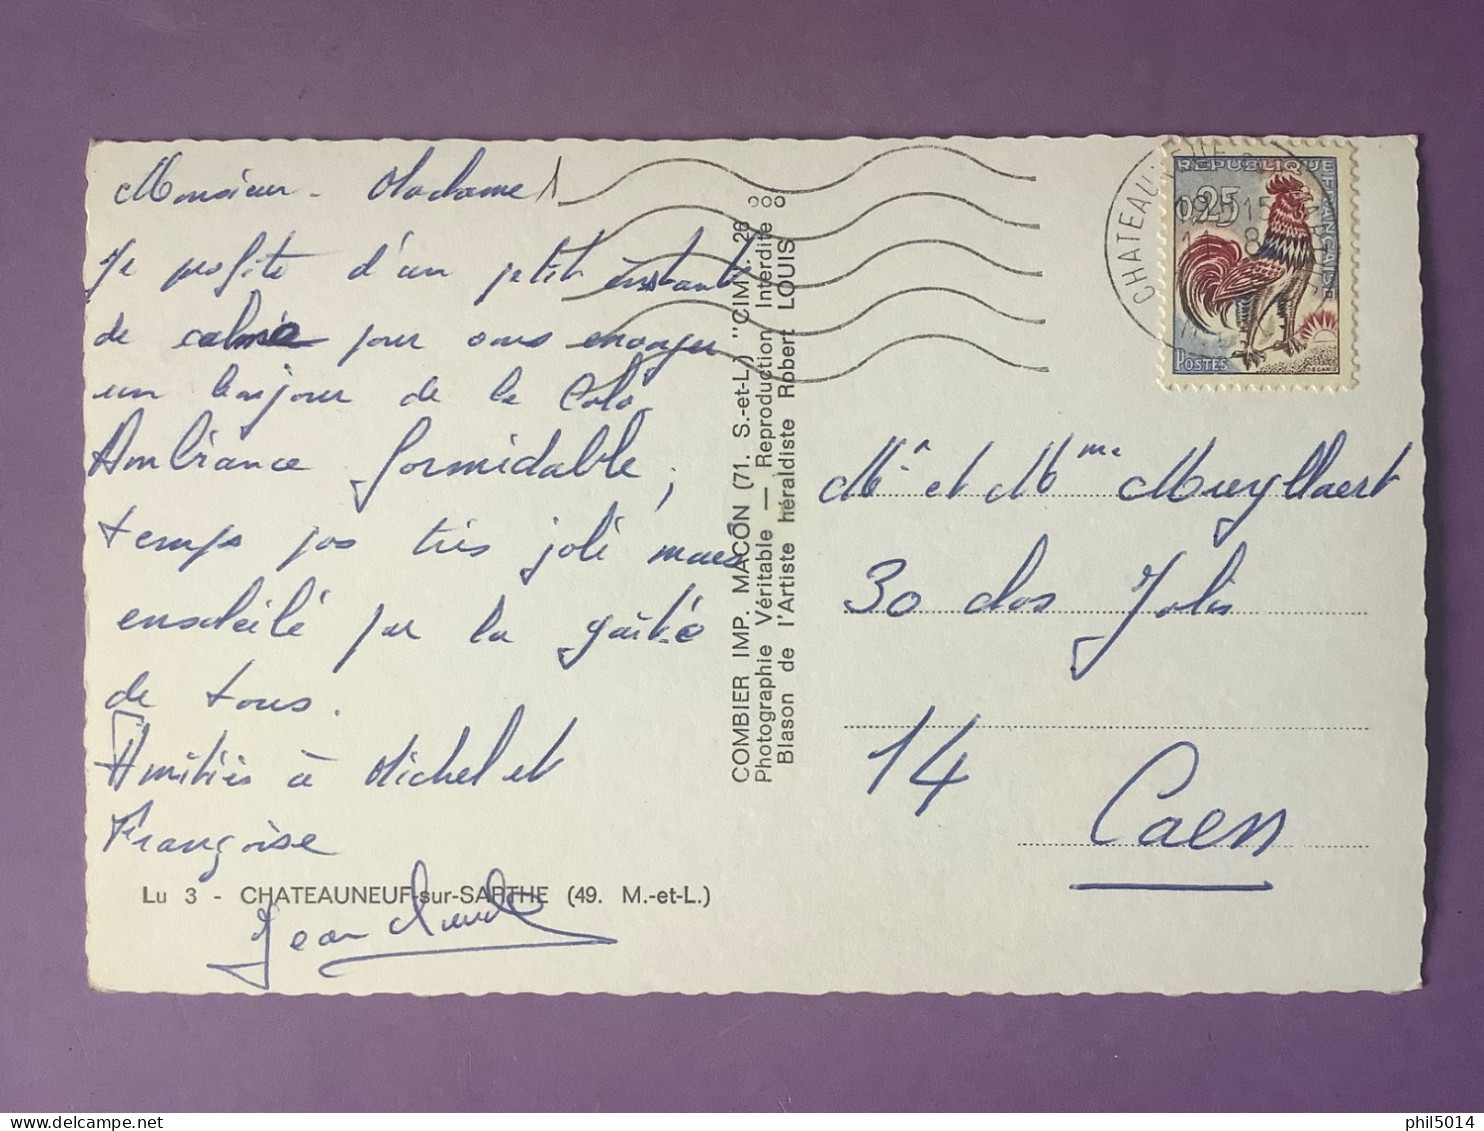 Monsieur - Madame
Je profite d'un petit instant
de calme pour vous envoyer
un bonjour de la Colo.
Ambiance formidable,
temps pas très joli mais
ensoleilé par la gaité
de tous.
Amitiés à Michel et
Françoise
Lu 3 - CHATEAUNEUF-sur-SARTHE (49. M.-et-L.)
Jean Claude
COMBIER IMP. MACON (71. S.-et-L.) "CIM". 26
Photographie Véritable — Reproduction Interdite
Blason de l'Artiste héraldiste Robert LOUIS
REPUBLIQUE FRANÇAISE
0,25
POSTES
DECARIS
CHATEAUNEUF
Mr et Mme Muyllaert
30 clos Joli
14
Caen
phil5014